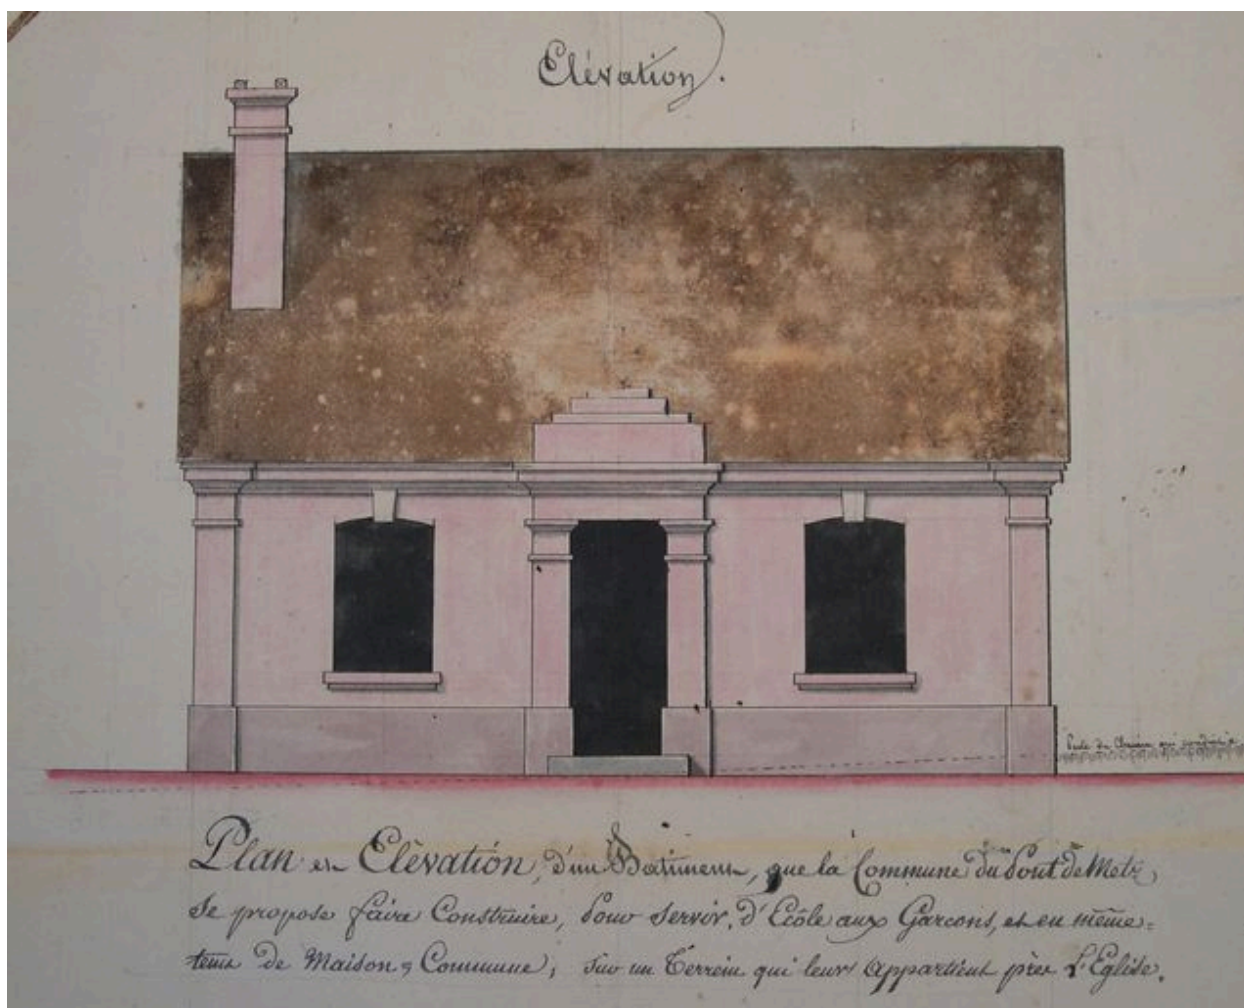 Elévation.
Plan et Elèvation, d'un Batiment, que la Commune du Pont de Metz
Se propose faire Construire, pour servir, d'Ecôle aux Garcons, et en même=
tems de Maison Commune; sur un Terrein qui leurs appartient près L'Eglise.